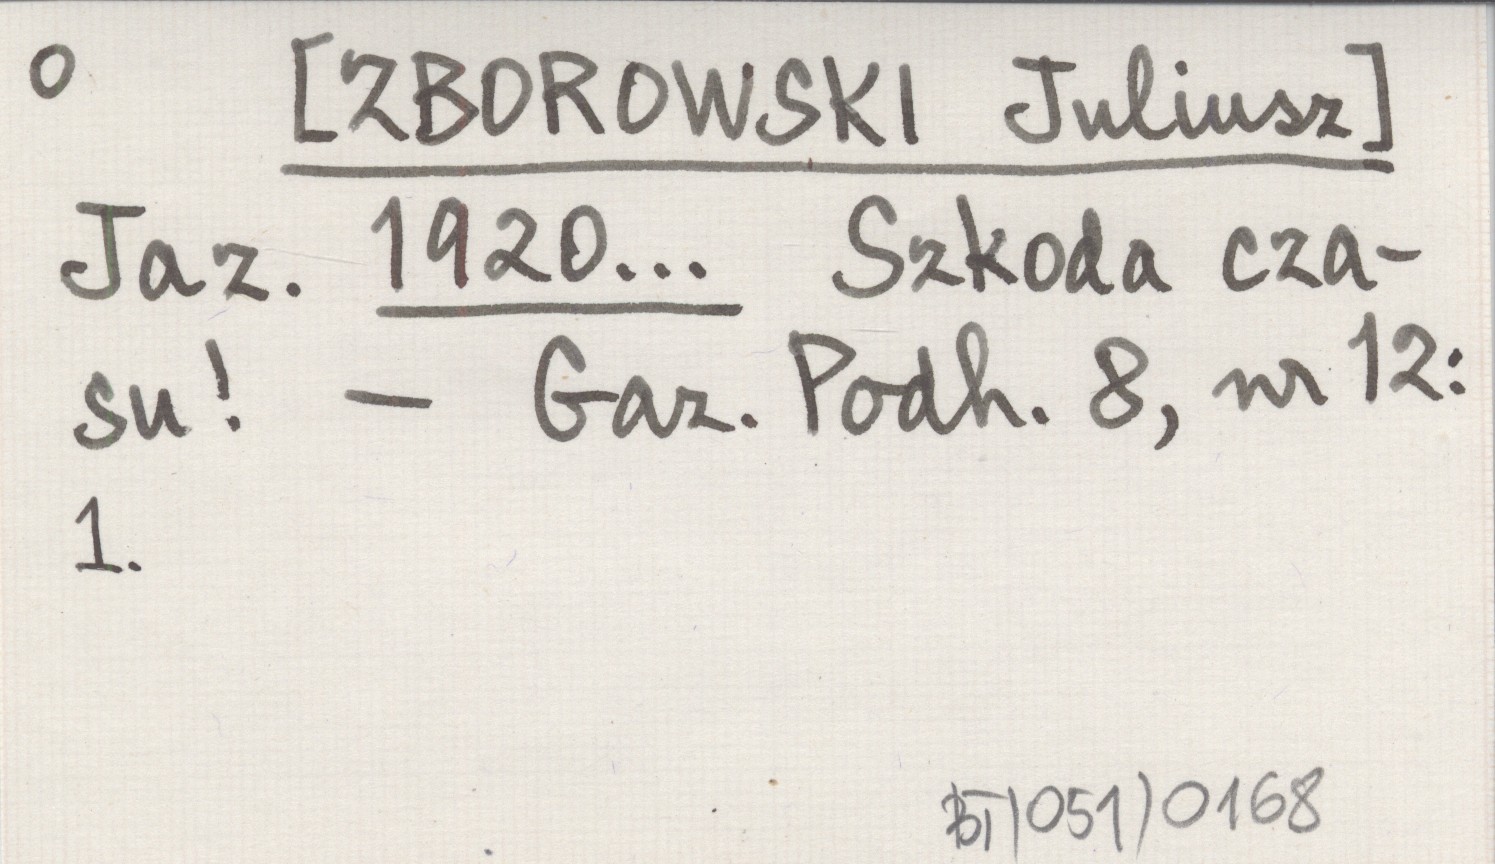 o [ZBOROWSKI Juliusz]
Jaz. 1920... Szkoda cza-
su! — Gaz. Podh. 8, nr 12:
1.
BT/051/0168